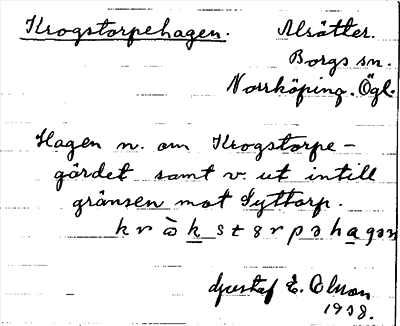 Krogstorpehagen.
Alsätter.
Borgs sn.
Norrköping. Ögl.
Hagen n. om Krogstorpe-
gärdet samt v. ut intill
gränsen mot Lyttorp.
Gustaf E. Olsson
1938.